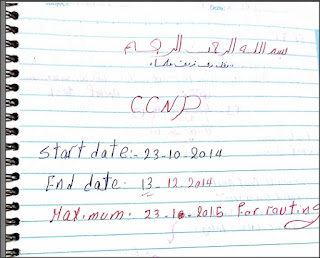 بسم الله الرحمن الرحيم
CCNP
Start date:- 23-10-2014
End date. 13-12-2014
Maximum. 23-10-2015 For routing